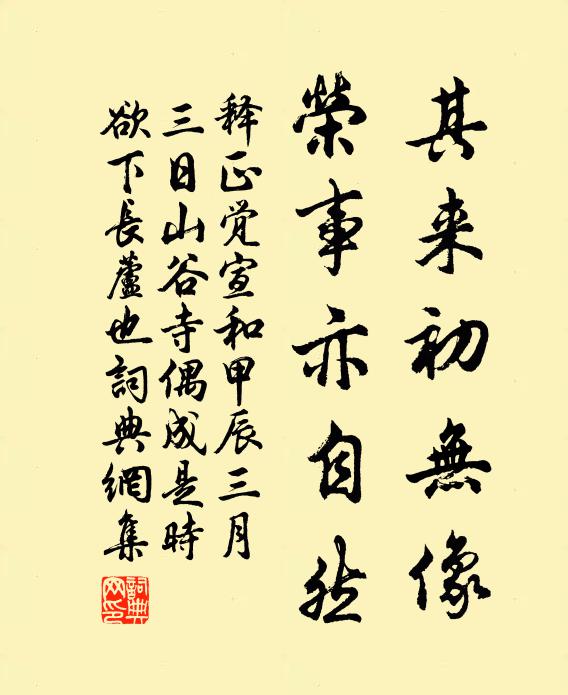 其来初無像
榮事亦自然
释正觉宣和甲辰三月
三日山谷寺偶成是時
欲下長蘆也詞典網集
詞典
网印